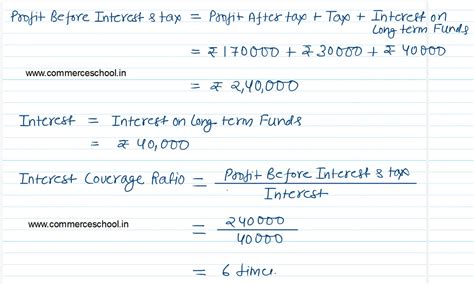 Profit Before Interest & tax = Profit After tax + Tax + Interest on
Long term Funds
= ₹170000 + ₹30000 + ₹ 40000
www.commerceschool.in
= ₹ 2,40,000
Interest = Interest on Long term Funds
= ₹ 40,000
Interest Coverage Ratio = Profit Before Interest & tax
Interest
www.commerceschool.in
= 240000
40000
= 6 times.